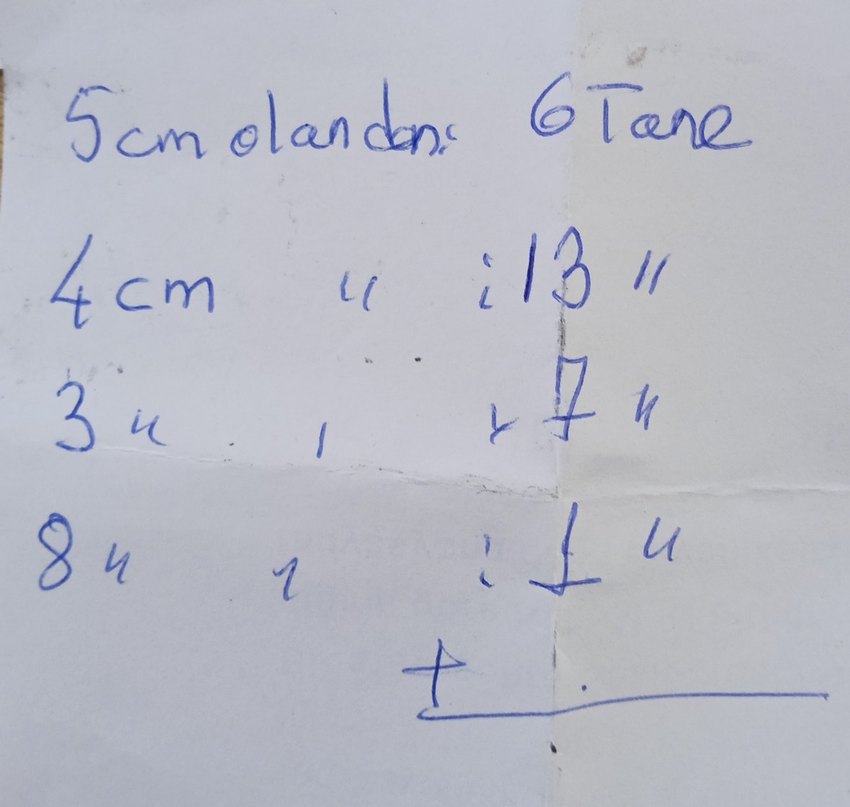 5cm olandan: 6 Tane
4cm " : 13 "
3 " , : 7 "
8 " , : 1 "
+